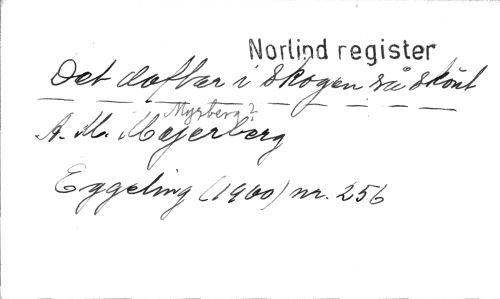 Norlind register
Det doftar i skogen så skönt
Myrberg?
A. M. Meyerberg
Eggeling (1900) nr. 256